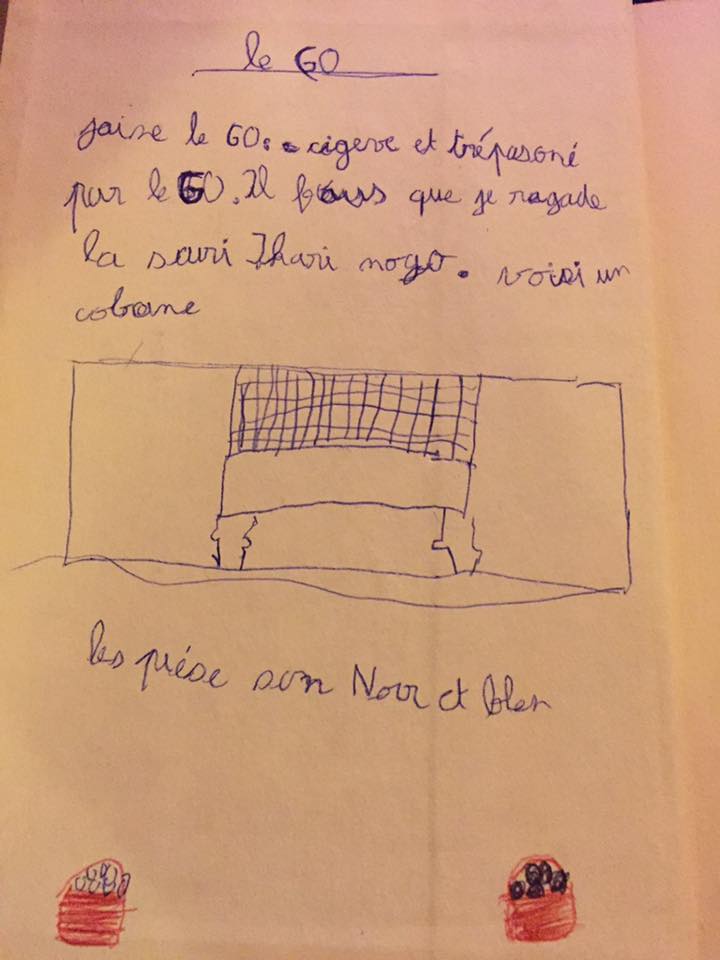 le GO
jaise le GO. cigeve et trépasoné
par le GO. Il fouss que je ragade
la sauri Ihari nogo. voisi un
cobane
les piése son Noir et blen